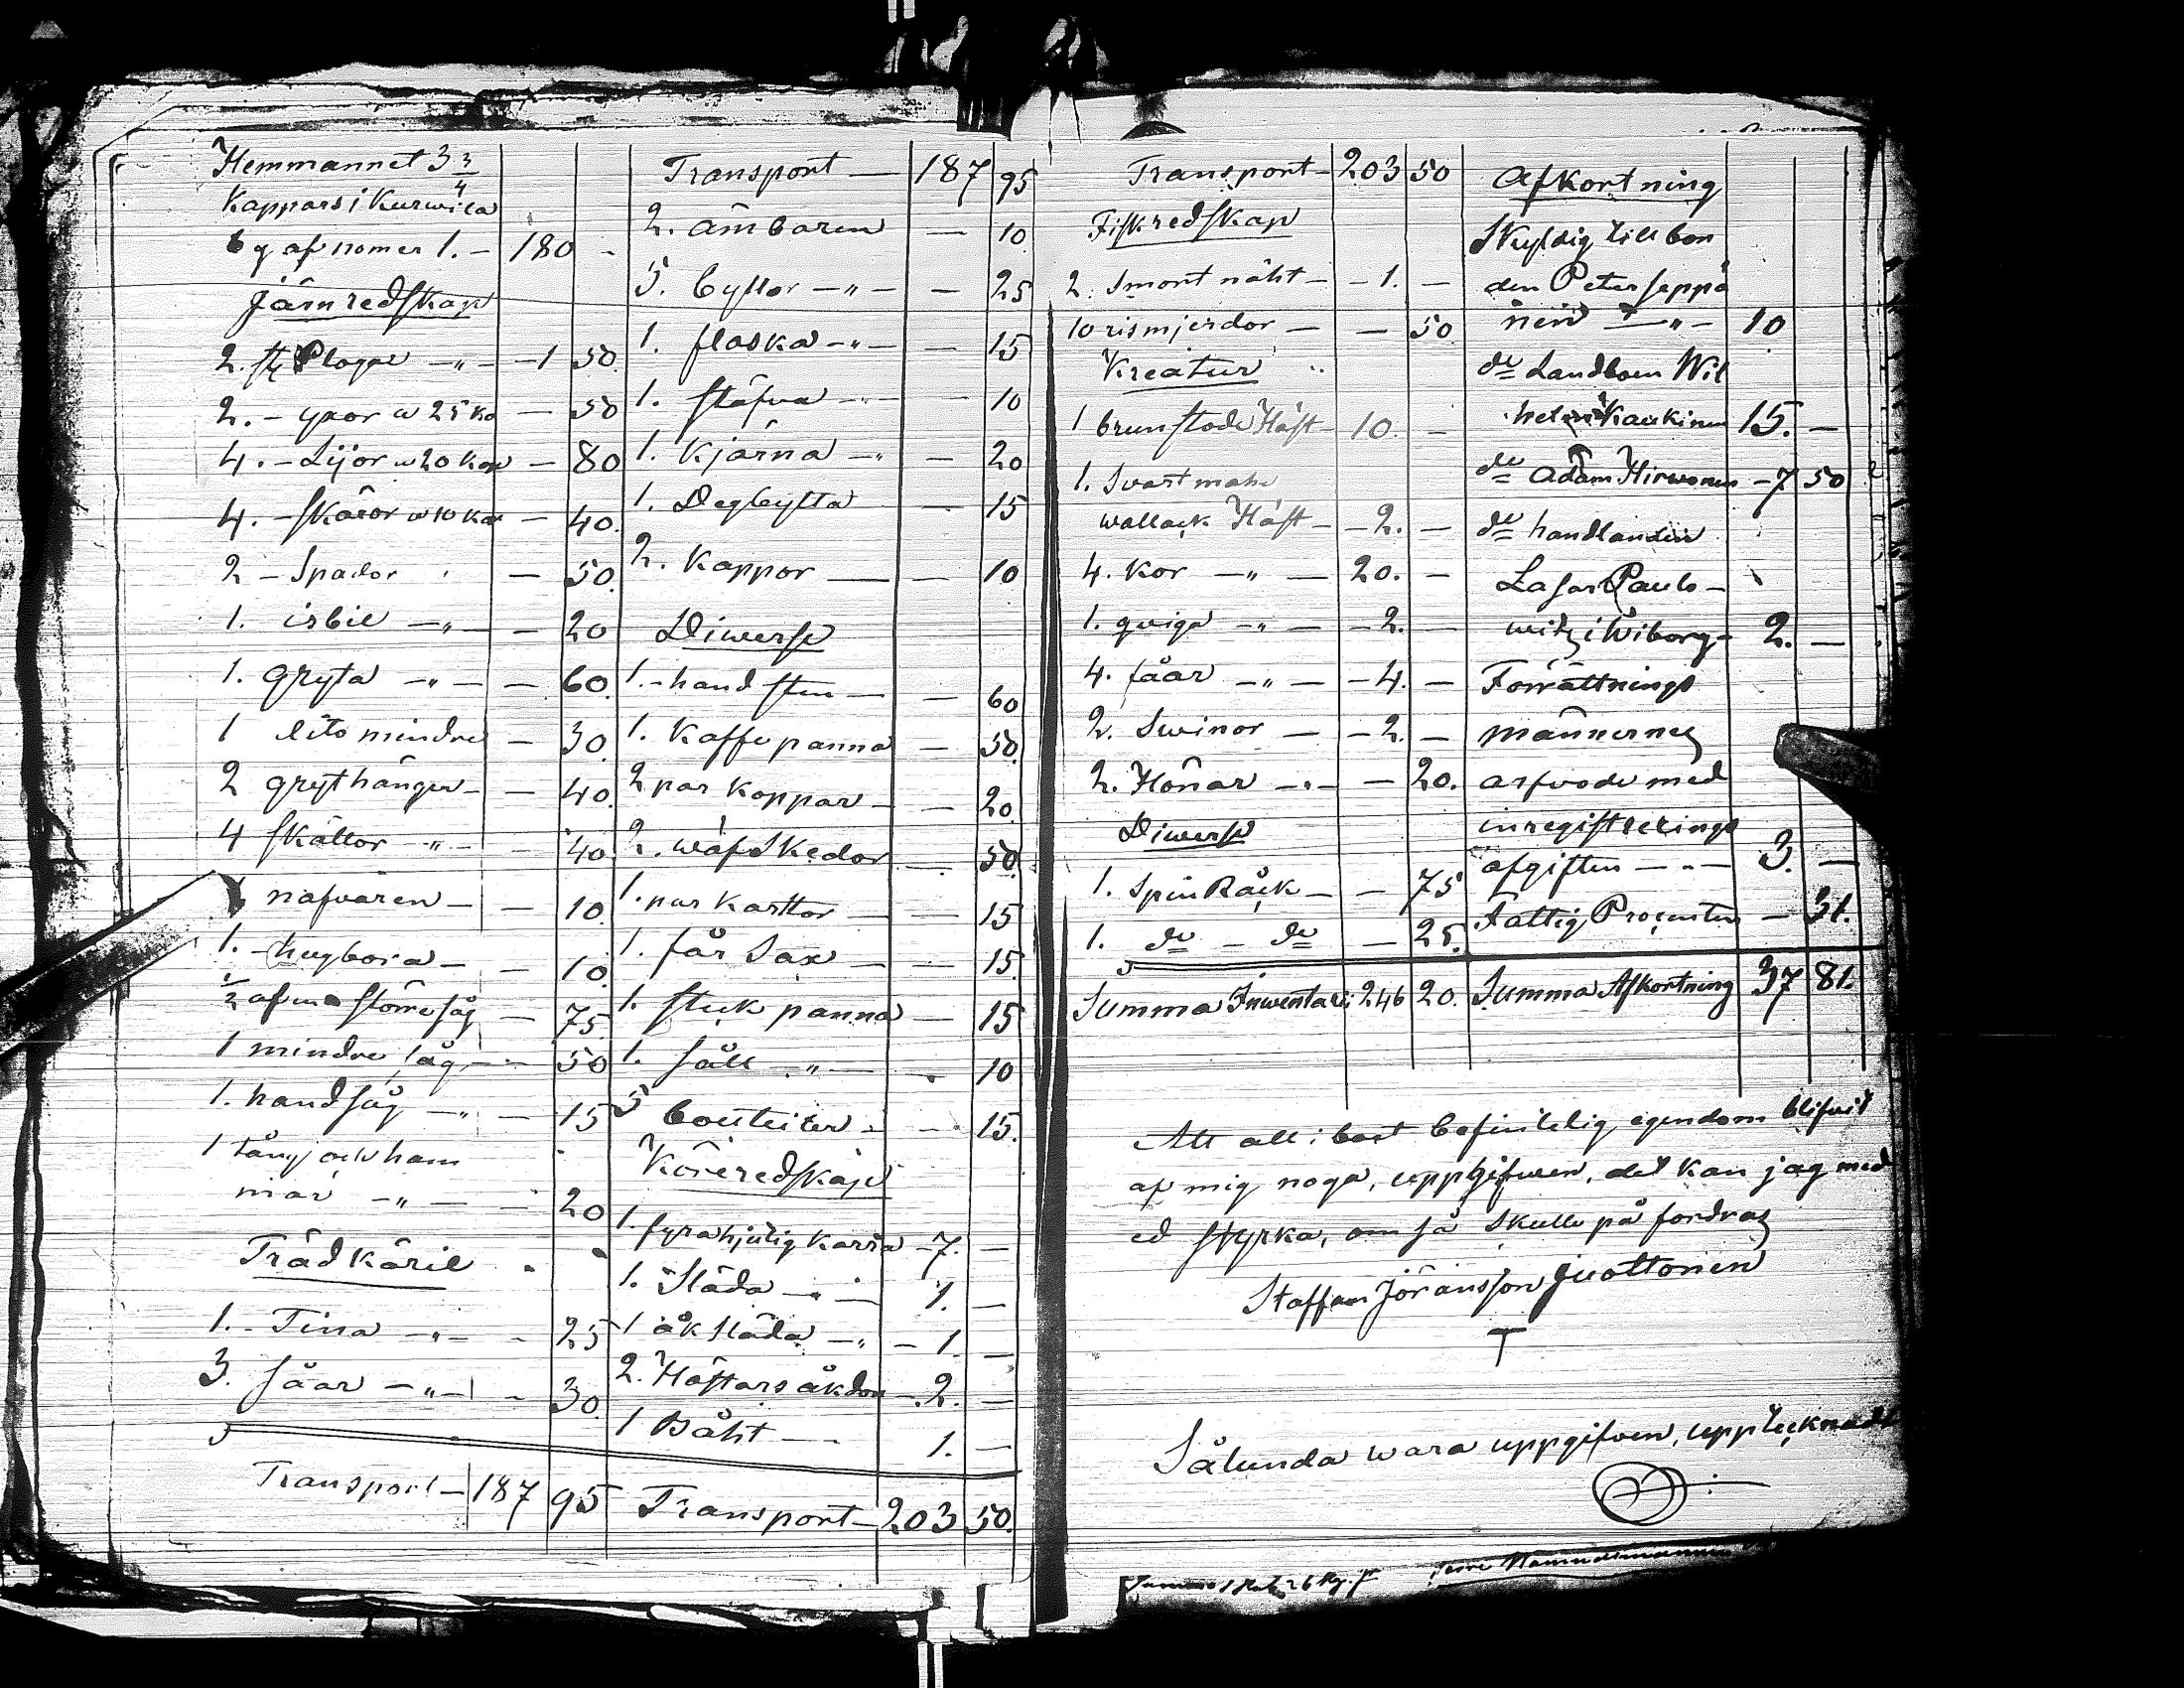 Hemmannet 3 3/4
Kappars i Kurwila
by af nomer 1. – 180 –
Järnredskap
2. st Plogar –"– – 1 50.
2. – yxor a 25 ko – 50
4. – Lijor a 20 kop – 80
4. – Skäror a 10 kop – 40.
2 – Spador – 50.
1. isbil –"– – 20
1. gryta –"– – 60.
1 dito mindre – 30.
2 grythänger – – 40.
4 skällor –"– – 40.
nafvaren – – 10.
1. – hugbora – – 10.
1/2 af en större såg – 75.
1 mindre såg – – 50
1. handsåg –"– – 15
1 tång och ham
mar –"– – 20
Träd käril
1. – Tina –"– – 25
3. såar –"– – 30.
Transport – 187 95
Transport – 187 95
2. ämbaren – 10.
5. byttor –"– – 25
1. flaska –"– – 15
1. stäfva –"– – 10
1. Kjärna –"– – 20
1. Degbytta – 15
2. Kappor – – 10
Diwerse
1. – hand sten – – 60
1. Kaffe panna – 50.
2 par koppar – – 20.
2. wäfskedar – 50.
1. par karttor – – 15
1. får Sax – – 15.
1. stek panna – 15
1. såll –"– – 10
5 bouteiler – – 15.
Köreredskap
1. fyrahjulig karra – 7. –
1. Släda –"– 1. –
1 åk släda –"– – 1. –
2. Hästars åkdon – 2. –
1 Båht – 1. –
Transport – 203 50.
Transport – 203 50
Fiskredskap
2. Smort näht – – 1. –
10 rismjerdor – – 50.
Kreatur
1 brun stode Häst – 10. –
1. Svart
wallack Häst – – 2. –
4. Kor –"– – 20. –
1. qwiga –"– – 2. –
4. fåar –"– – 4. –
2. Swinor – – 2. –
2. Hönar –"– – 20.
Diwerse
1. Spin Råck – – 75
1. do – do – 25.
Summa Inwentari: 246 20.
Afkortning
Skyldig till bon
den Peter Seppä
nen –"– 10
do Landboen Wil
helm Kaukinen 15. –
do Adam Hirwonen – 7 50
do handlanden
Lasar Paulo –
witz i Wiborg – 2. –
Förrättnings
männernes
arfvode med
inregistrerings
afgiften – – 3. –
Fattig Procenten – 31.
Summa Afkortning 37 81.
Att all i boet befintelig egendom blifvit
af mig noga, uppgifwen, det kan jag med
ed styrka, om så skulle på fordras
Staffan Jöransson Juottonen
T
Sålunda wara uppgifven, upptecknadt